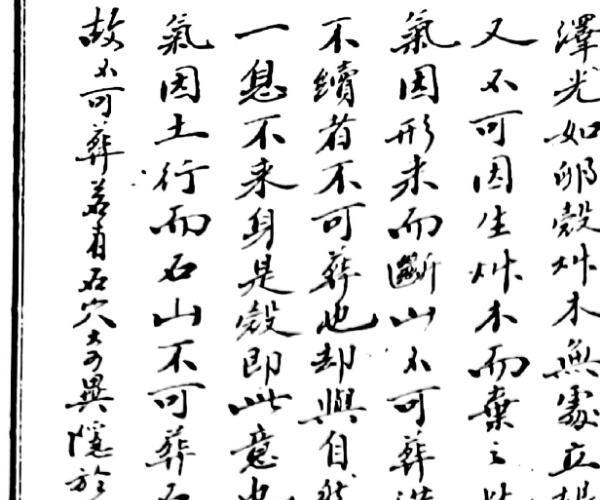 澤光如卵殼艸木無處立根
又不可因生艸木而棄之此
氣因形來而斷山不可葬
不續者不可葬也却與自然
一息不來身是殼即此意也
氣因土行而石山不可葬石
故不可葬若有石穴奇異隱於